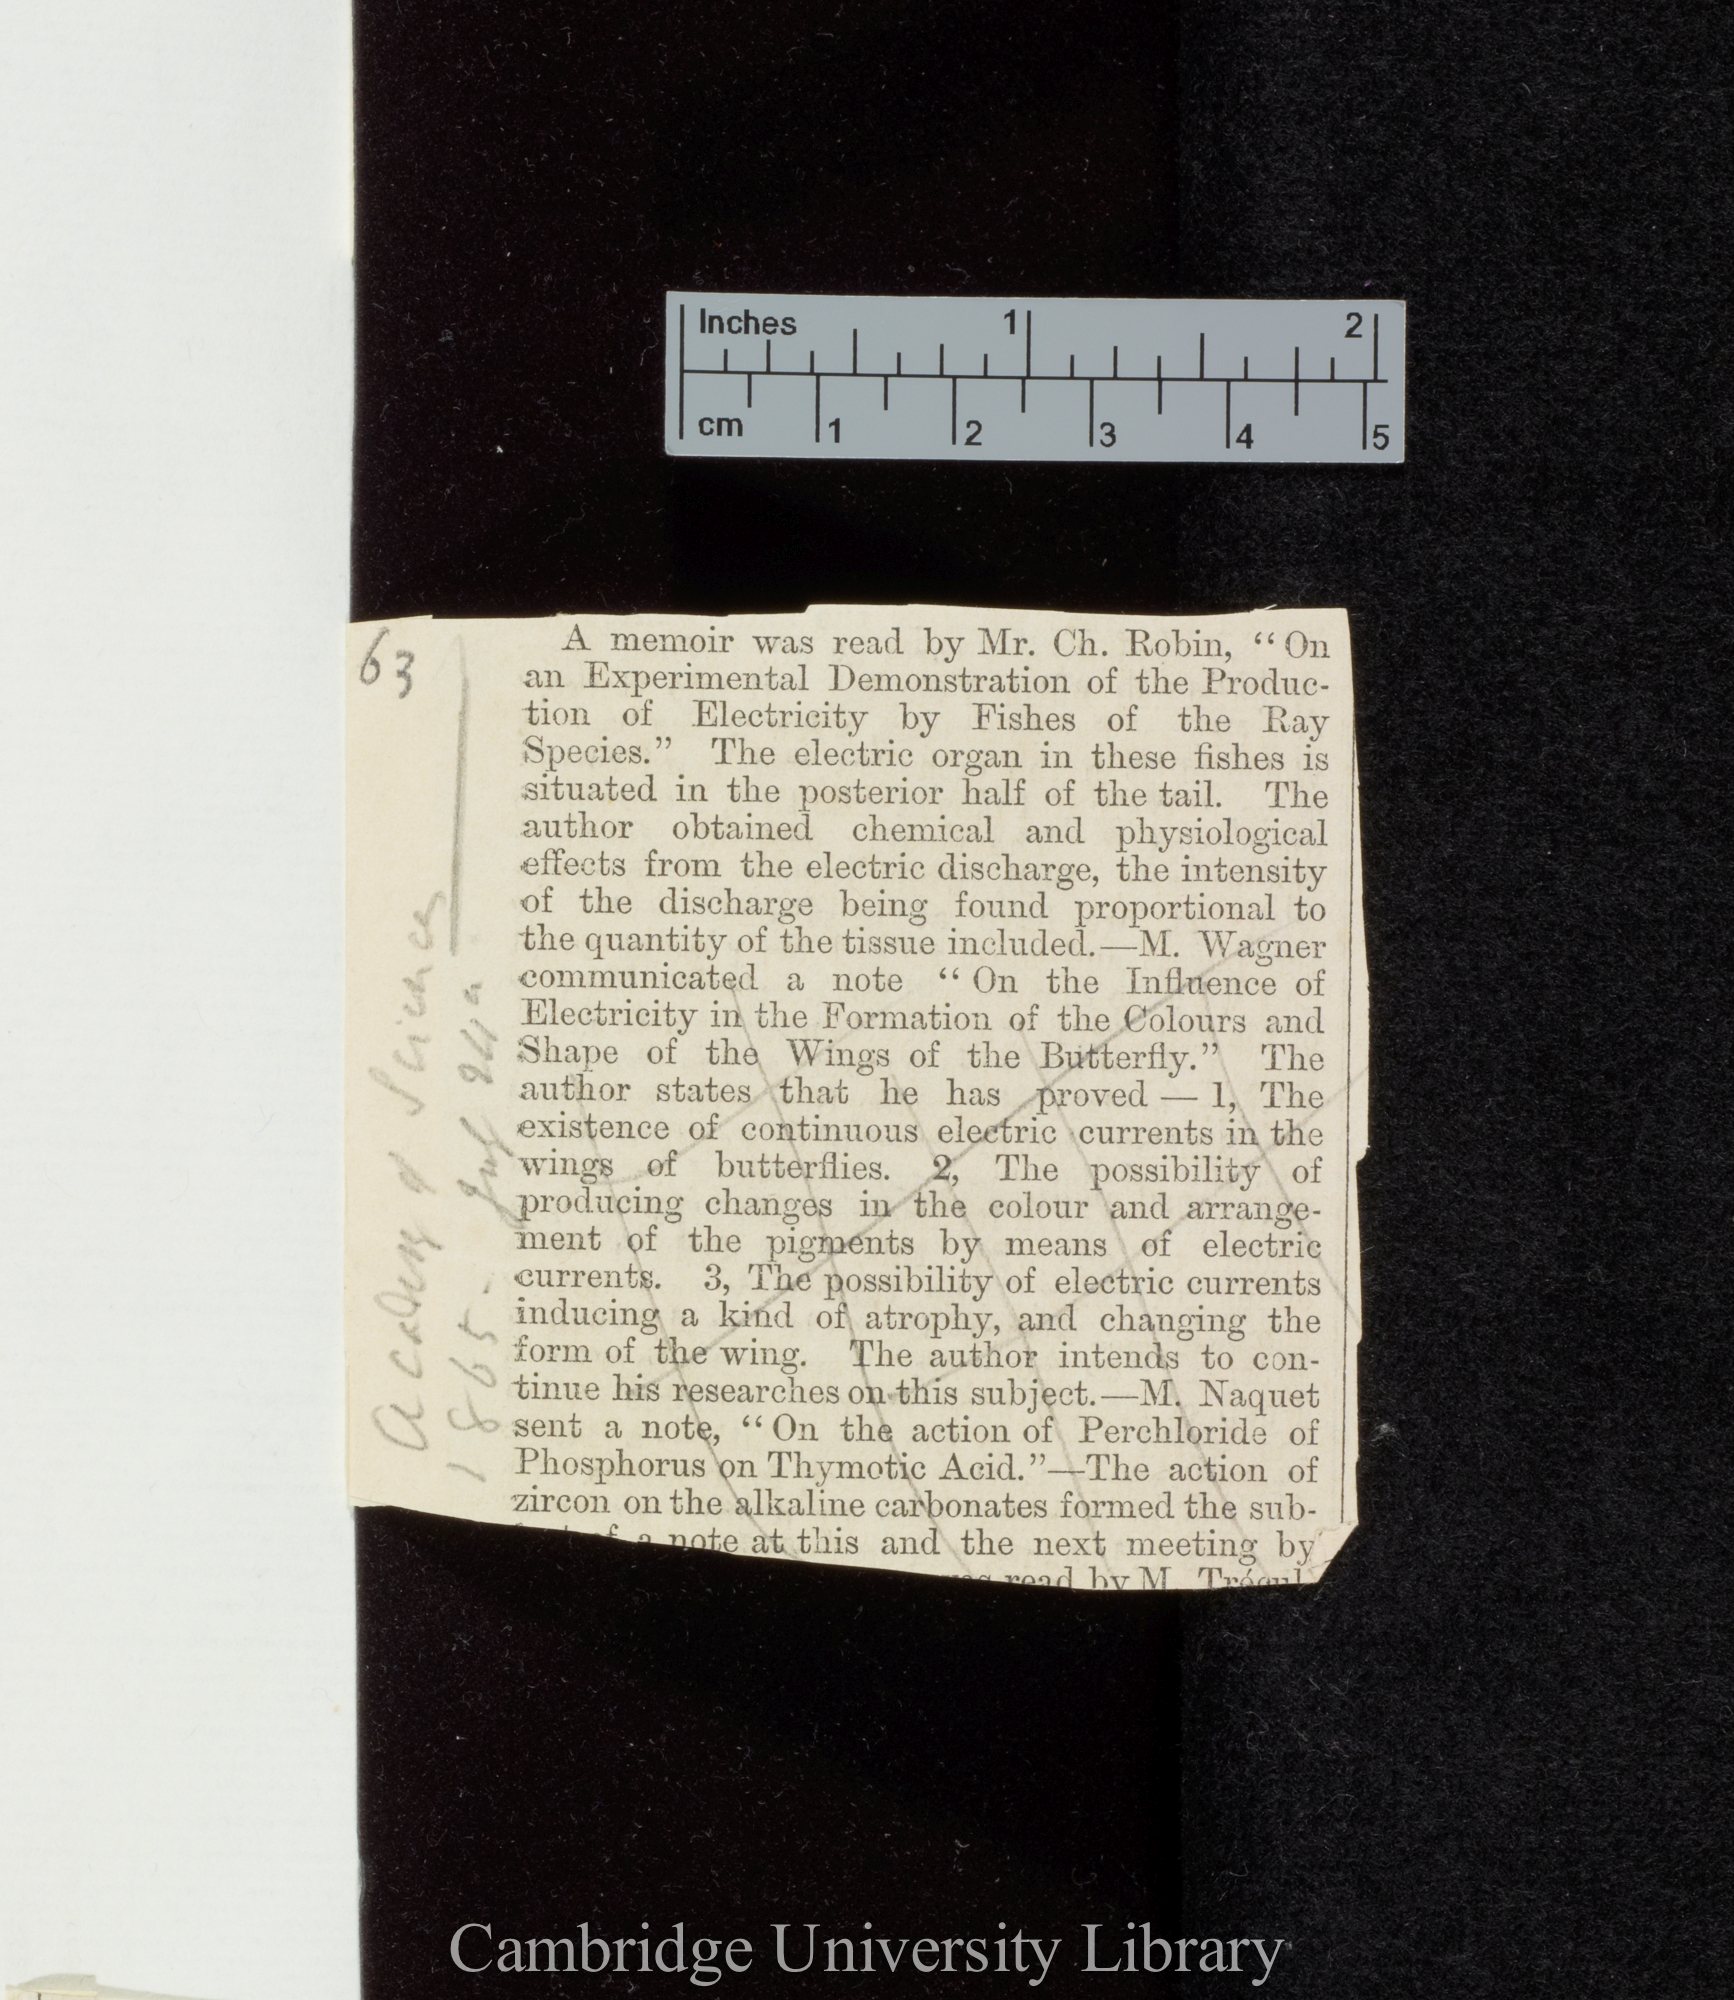 Inches 1 2
cm 1 2 3 4 5
63
A memoir was read by Mr. Ch. Robin, “On
an Experimental Demonstration of the Produc-
tion of Electricity by Fishes of the Ray
Species.” The electric organ in these fishes is
situated in the posterior half of the tail. The
author obtained chemical and physiological
effects from the electric discharge, the intensity
of the discharge being found proportional to
the quantity of the tissue included.—M. Wagner
communicated a note “On the Influence of
Electricity in the Formation of the Colours and
Shape of the Wings of the Butterfly.” The
author states that he has proved — 1, The
existence of continuous electric currents in the
wings of butterflies. 2, The possibility of
producing changes in the colour and arrange-
ment of the pigments by means of electric
currents. 3, The possibility of electric currents
inducing a kind of atrophy, and changing the
form of the wing. The author intends to con-
tinue his researches on this subject.—M. Naquet
sent a note, “On the action of Perchloride of
Phosphorus on Thymotic Acid.”—The action of
zircon on the alkaline carbonates formed the sub-
of a note at this and the next meeting by
read by M. Trécul
Academy of Science
1865. July 24
Cambridge University Library